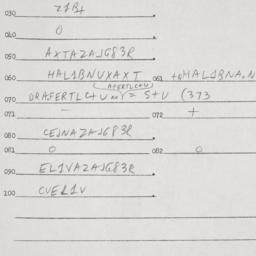 030 21B+
040 0
050 AXTAZAJG83R
060 HAL1BNUXAXT 061 +0HAL1BNA.N
(AFERTLC+U)
070 DRAFERTLC+U = S+U (373
071 - 072 +
080 CEJNAZAJG83R
081 0 082 0
090 EL1VAZAJG83R
100 CVEL1V